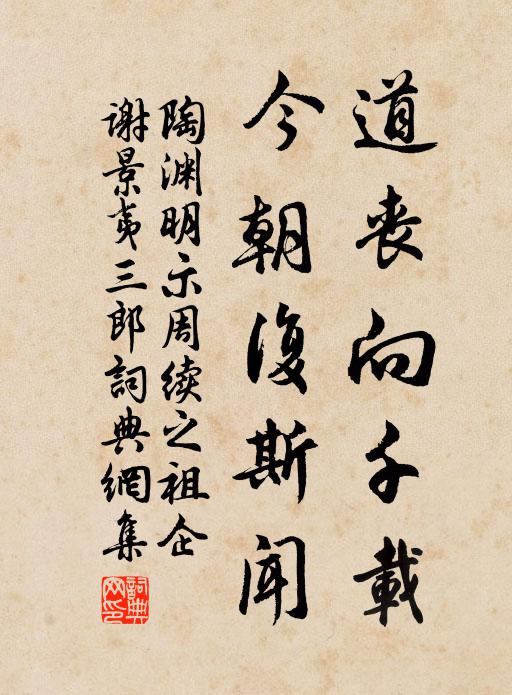 道丧向千載
今朝復斯聞
陶渊明示周续之祖企
谢景夷三郎詞典網集
詞典网印